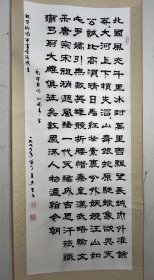 北國風光千里冰封萬里雪飄望長城內外惟餘
莽莽大河上下頓失滔滔山舞銀蛇原馳蠟象欲與天
公試比高須晴日看紅裝素裹分外妖嬈江山如
此多嬌引無數英雄競折腰惜秦皇漢武略輸文
采唐宗宋祖稍遜風騷一代天驕成吉思汗祇識
彎弓射大雕俱往矣數風流人物還看今朝